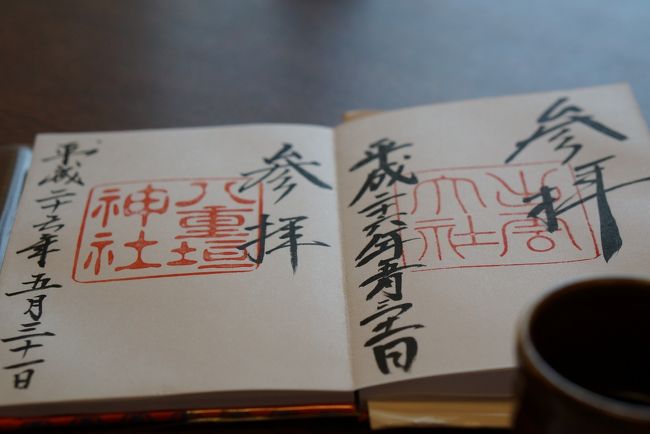 参拝
出雲
大社
平成二十六年五月三十一日
参拝
八重垣
神社
平成二十六年五月三十一日